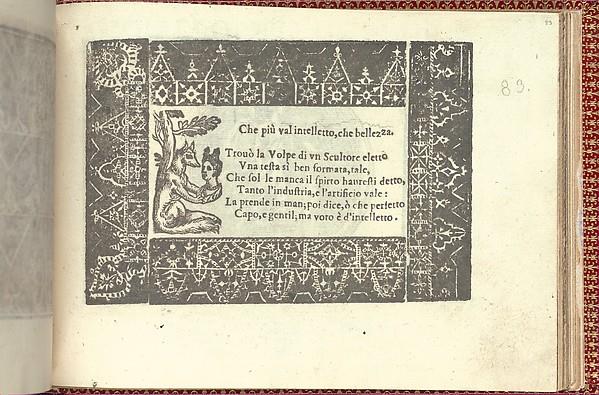 83
89.
Che più val intelletto, che bellezza.
Trouò la Volpe di vn Scultore eletto
Vna testa sì ben formata, tale,
Che sol le manca il spirto hauresti detto,
Tanto l'industria, e l'artificio vale:
La prende in man; poi dice, ò che perfetto
Capo, e gentil; ma voto è d'intelletto.